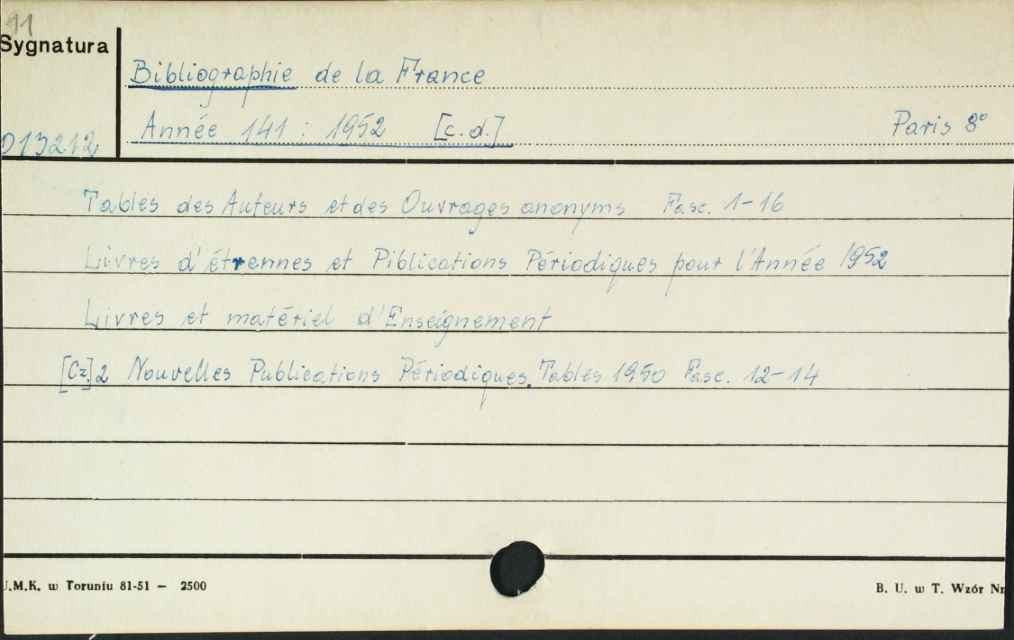 11
Sygnatura
Bibliographie de la France
Année 141 : 1952 [c.d.] Paris 8°
013212
Tables des Auteurs et des Ouvrages anonyms Fasc. 1-16
Livres d'étrennes et Piblications Périodiques pour l'Année 1952
Livres et matériel d'Enseignement
[Cz.]2 Nouvelles Publications Périodiques. Tables 1950 Fasc. 12-14
U.M.K. w Toruniu 81-51 — 2500
B. U. w T. Wzór Nr